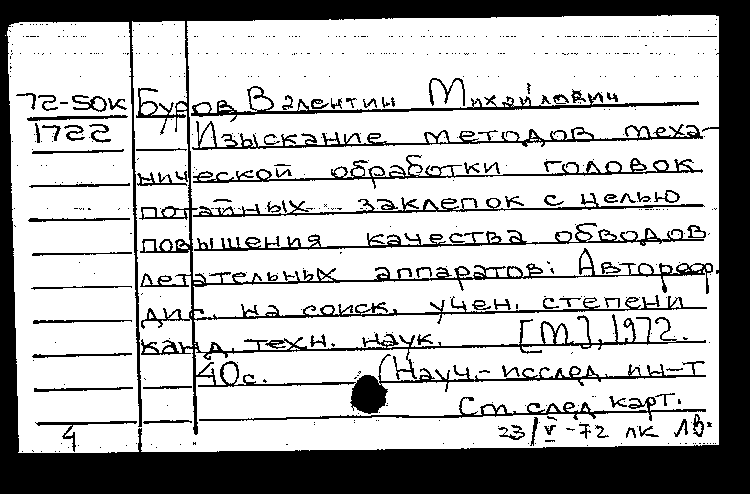 72-50к Буров, Валентин Михайлович
1722 Изыскание методов меха-
нической обработки головок
потайных заклепок с целью
повышения качества обводов
летательных аппаратов: Автореф.
дис. на соиск. учен. степени
канд. техн. наук. [М.], 1972.
40с. (Науч.-исслед. ин-т
См. след. карт.
4 23/V-72 лк ЛВ.